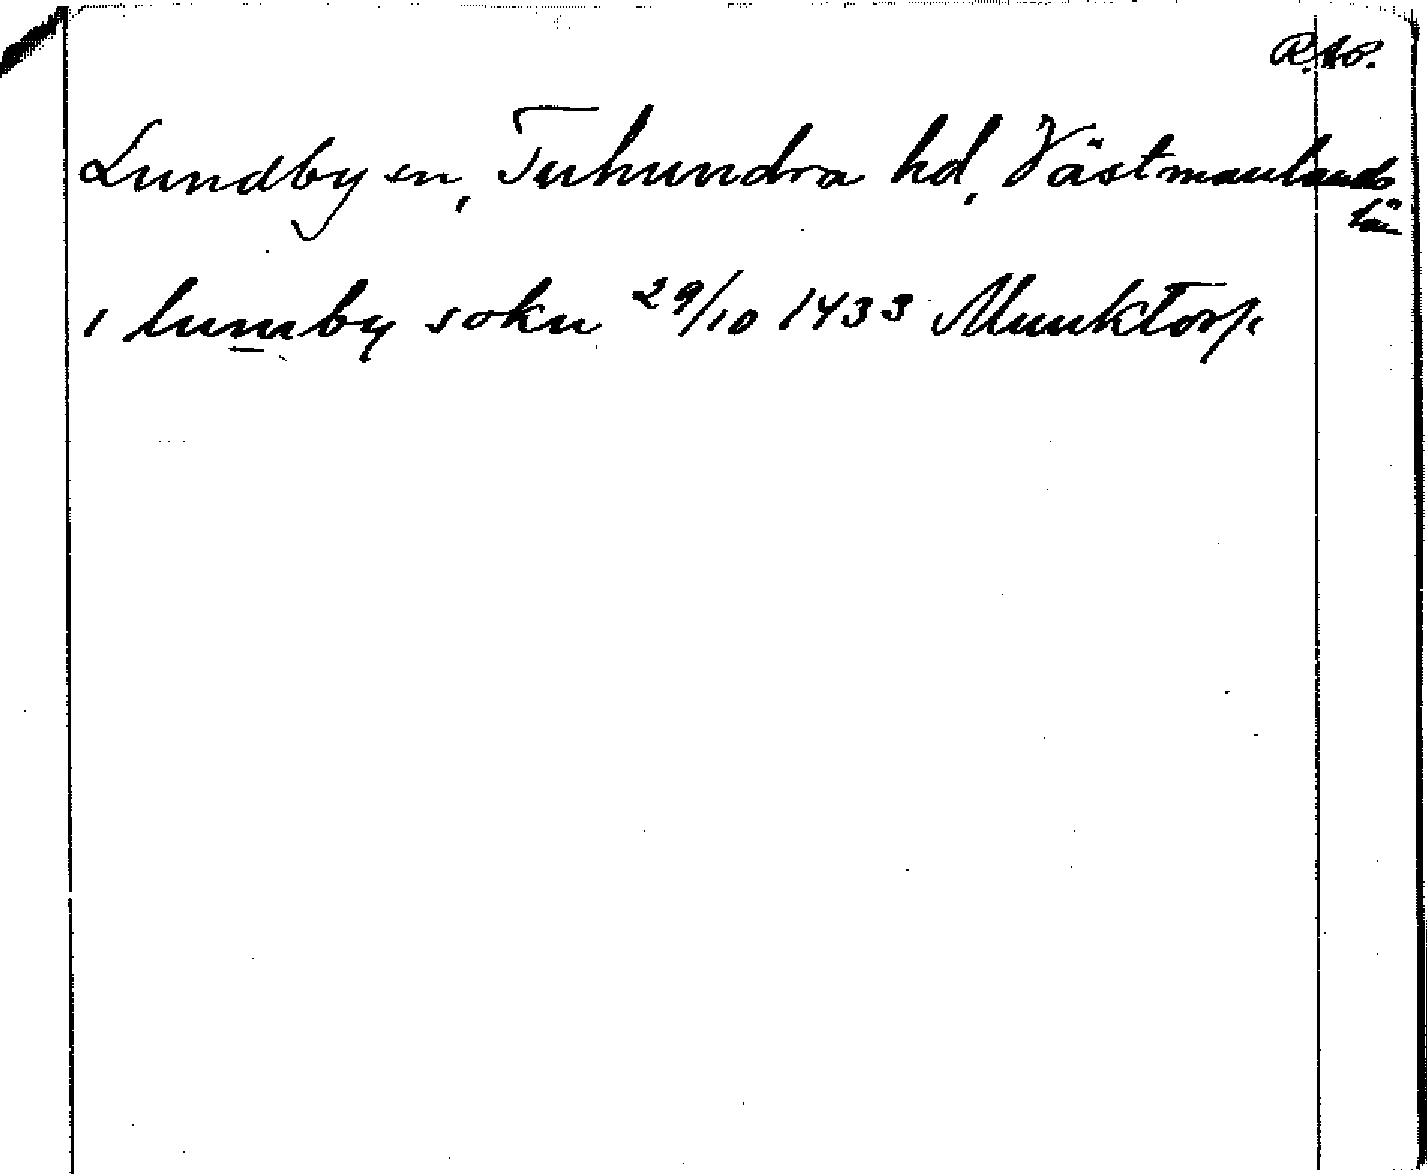 R.A.P.
Lundby sn, Tuhundra hd, Västmanlands
län
i lunnby sokn 29/10 1433 Munktorp